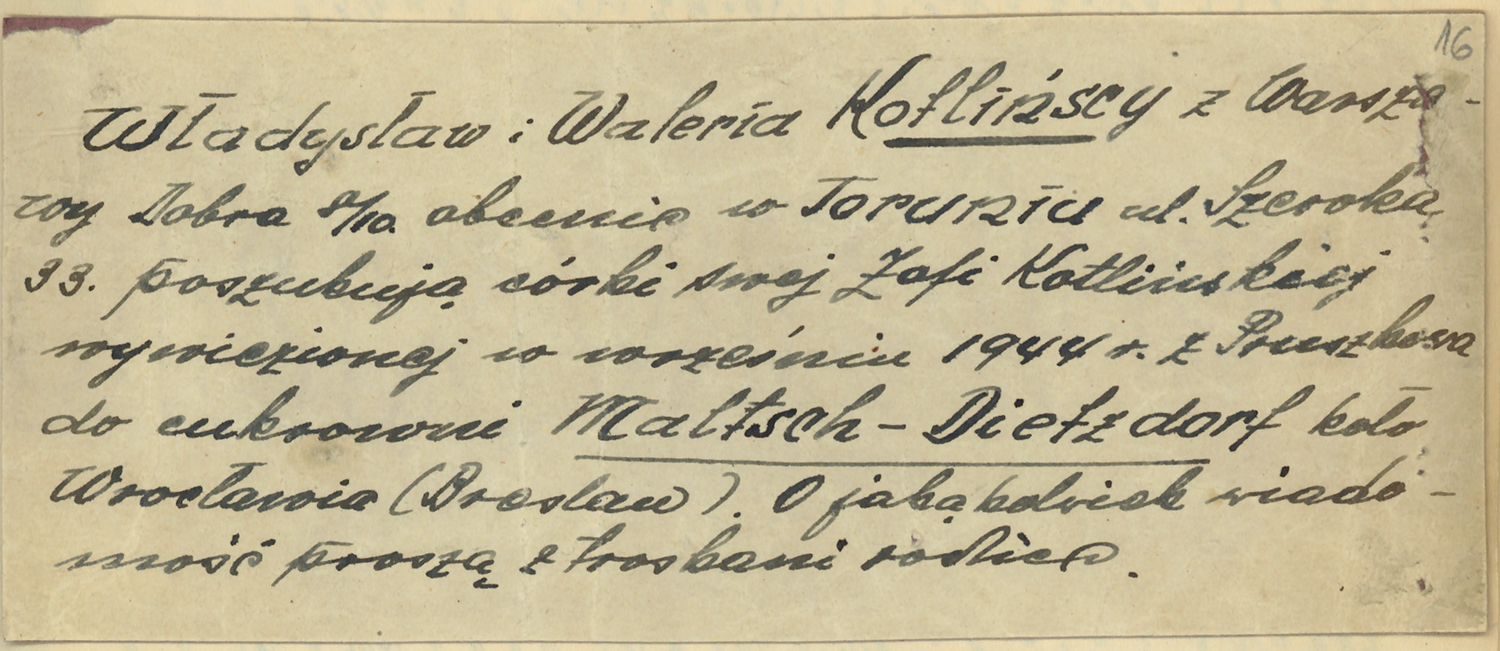 16
Władysław i Waleria Kotlińscy z Warsza-
wy Dobra 8/10. obecnie w Toruniu ul. Szeroka
33. poszukują córki swej Zofi Kotlińskiej
wywiezionej w wrześniu 1944 r. z Pruszkowa
do cukrowni Maltsch-Dietzdorf koło
Wrocławia (Breslau). O jakąkolwiek wiado-
mość proszą stroskani rodzice.